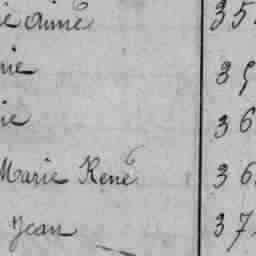 ie Aimé 35
rie 35
rie 36
Marie René 36
Jean 37